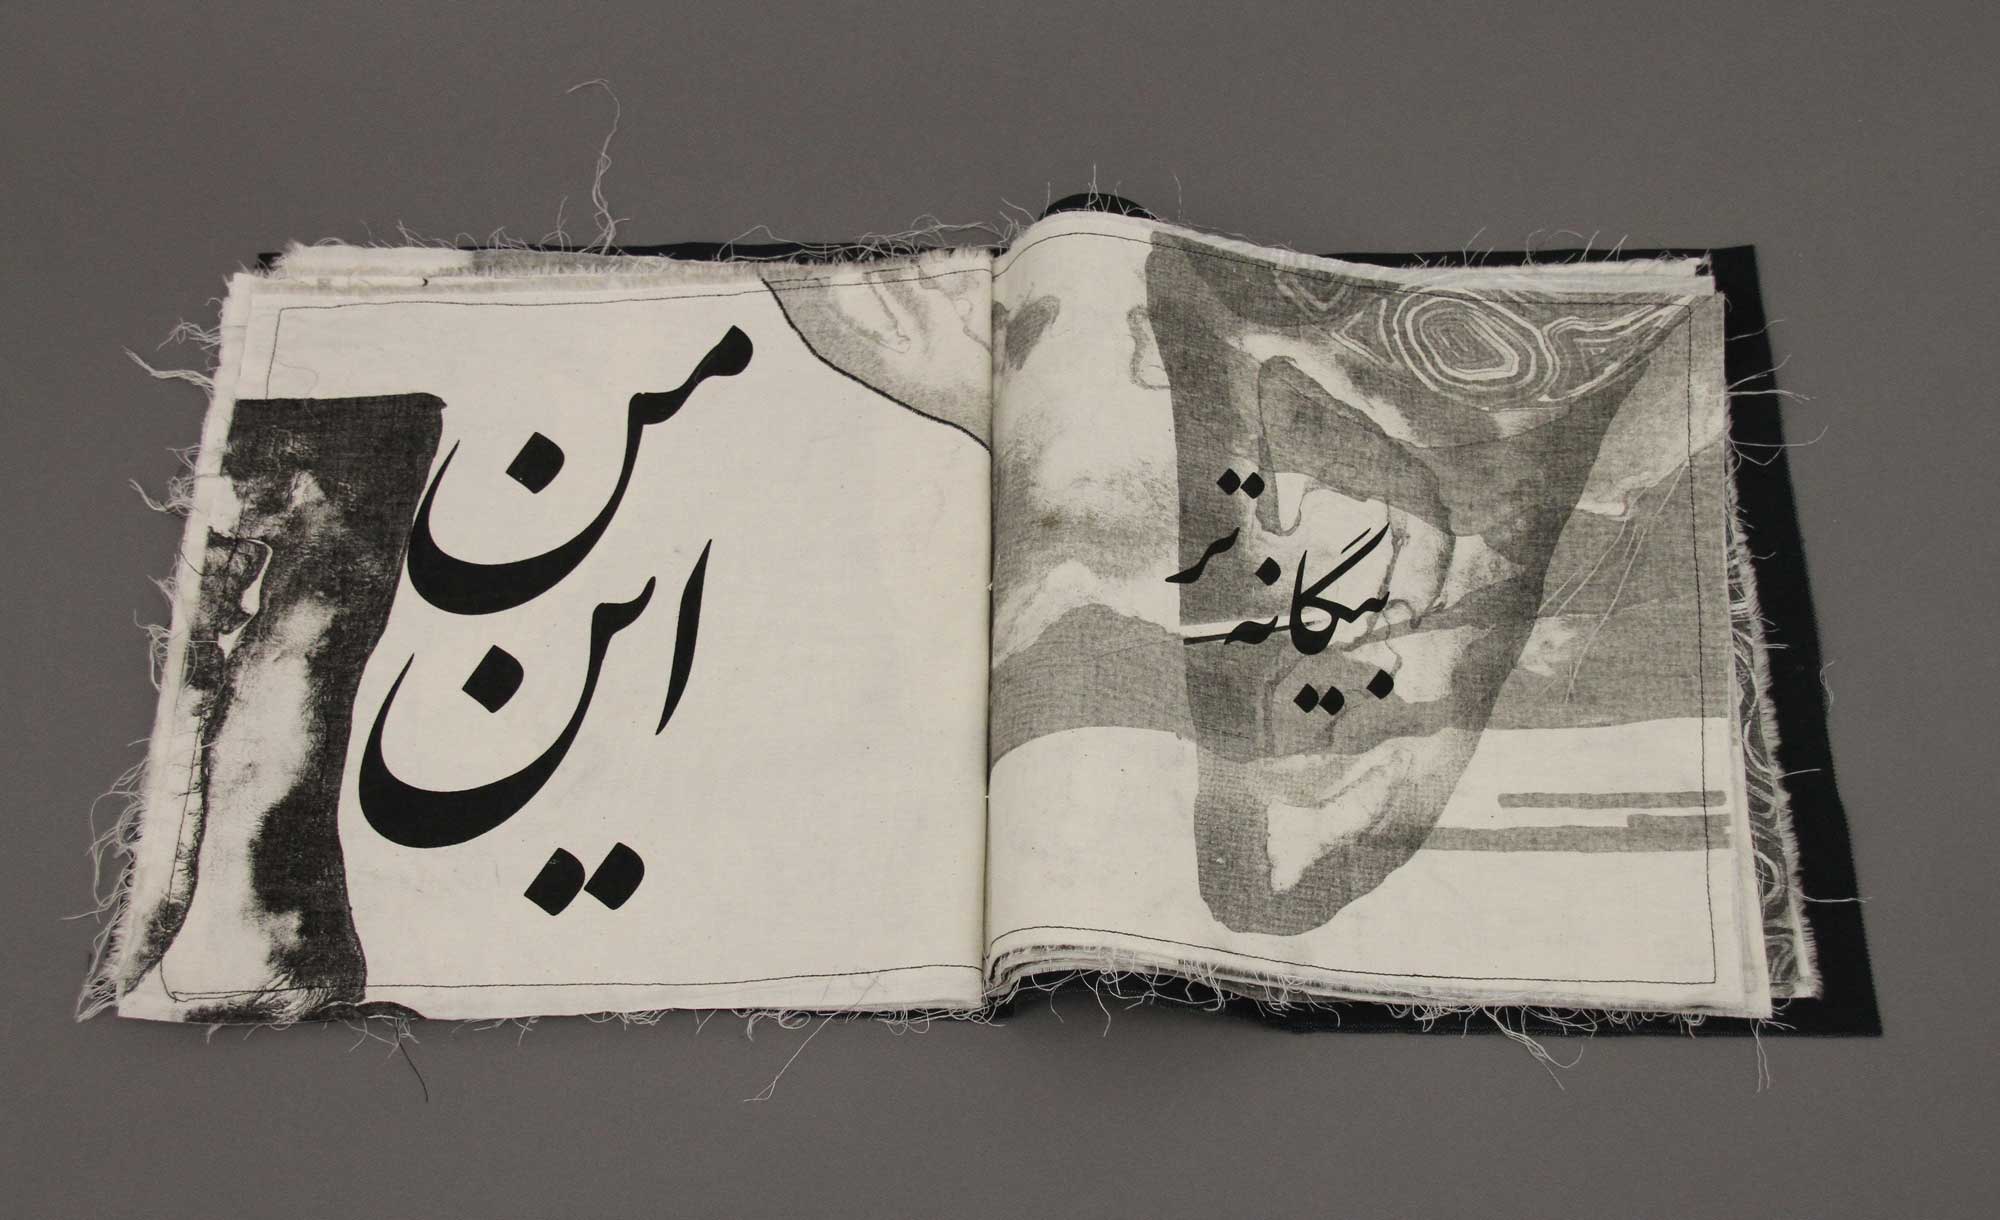 من
این
بیگانه تر